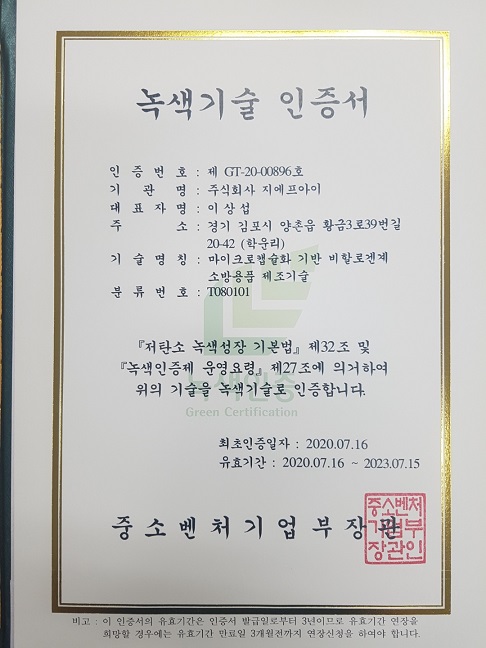 녹색기술 인증서
인 증 번 호 : 제 GT-20-00896호
기 관 명 : 주식회사 지에프아이
대 표 자 명 : 이 상 섭
주 소 : 경기 김포시 양촌읍 황금3로39번길
20-42 (학운리)
기 술 명 칭 : 마이크로캡슐화 기반 비할로겐계
소방용품 제조기술
분 류 번 호 : T080101
『저탄소 녹색성장 기본법』 제32조 및
『녹색인증제 운영요령』 제27조에 의거하여
위의 기술을 녹색기술로 인증합니다.
녹색인증
Green Certification
최초인증일자 : 2020.07.16
유효기간 : 2020.07.16 ~ 2023.07.15
중소벤처기업부장관
중소벤처
기업부
장관인
비고 : 이 인증서의 유효기간은 인증서 발급일로부터 3년이므로 유효기간 연장을
희망할 경우에는 유효기간 만료일 3개월전까지 연장신청을 하여야 합니다.